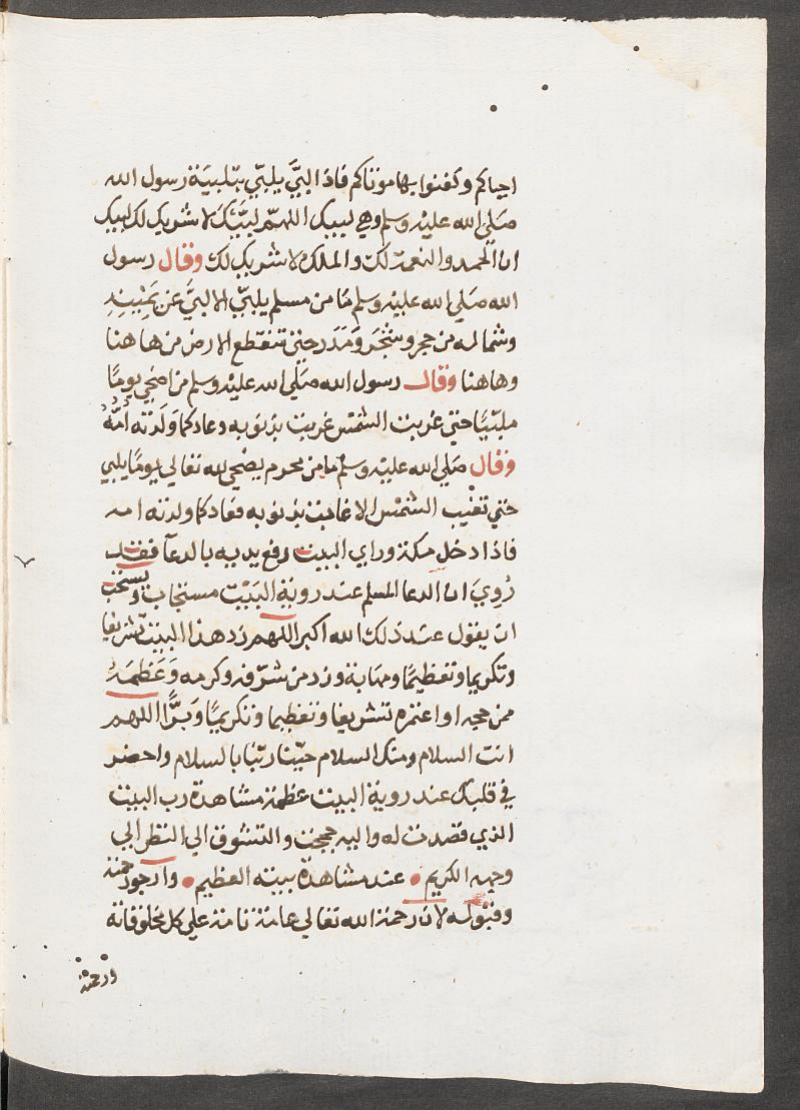 احياكم وكفنوا بها موتاكم فاذا لبَّي يلبّي بتلبيَة رسول الله
صَلي الله عليه وسلم وهي لبيك اللهمّ لبَّيْكَ لا شريك لك لبيك
ان الحمد والنعمة لك والملك لا شريك لك وقال رسول
الله صَلي الله عليه وسلم مَا من مسلم يلبّي الا لبيَّ عن يَمِيْنِهِ
وشماله من حجر وشَجَر وَمَدَر حتي تنقطع الارض من هاهنا
وهاهنا وقال رسول الله صَلي الله عليه وسلم من اضحي يومًا
ملبّيًا حتي غربت الشمس غربت بذنوبه وعاد كما وَلَدته أُمّهُ
وقال صَلي الله عليه وسلم ما من محرم يضحي لله تعالي يومًا يلبي
حتي تغيب الشمس الا غابت بذنوبه فعاد كما ولدته امه
فاذا دخل مكة وراي البيت رفع يديه بالدعآ فقد
رُوِيَ ان الدعا المسلم عند روية البَيْت مستجاب ويستحب
ان يقول عند ذلك الله اكبر اللهم زد هذا البيت تشريفا
وتكريما وتعظيمًا ومهابة وزد من شرّفه وكرمه وَعَظمَهُ
ممن حجه او اعتمره تشريفا وتعظيما وتكريمًا وَبرًّا اللهم
انت السلام ومنك السلام حيّنا ربّنا بالسلام واحضر
في قلبك عند روية البيت عظمة مشاهدة رب البيت
الذي قصدت له واليه حججت والتشوق الي النظر الي
وجهه الكريم • عند مشاهدة بيته العظيم • وارجو رحمته
وقبوله لان رحمة الله تعالي عامة تامة علي كل مخلوقاته
ورحمته